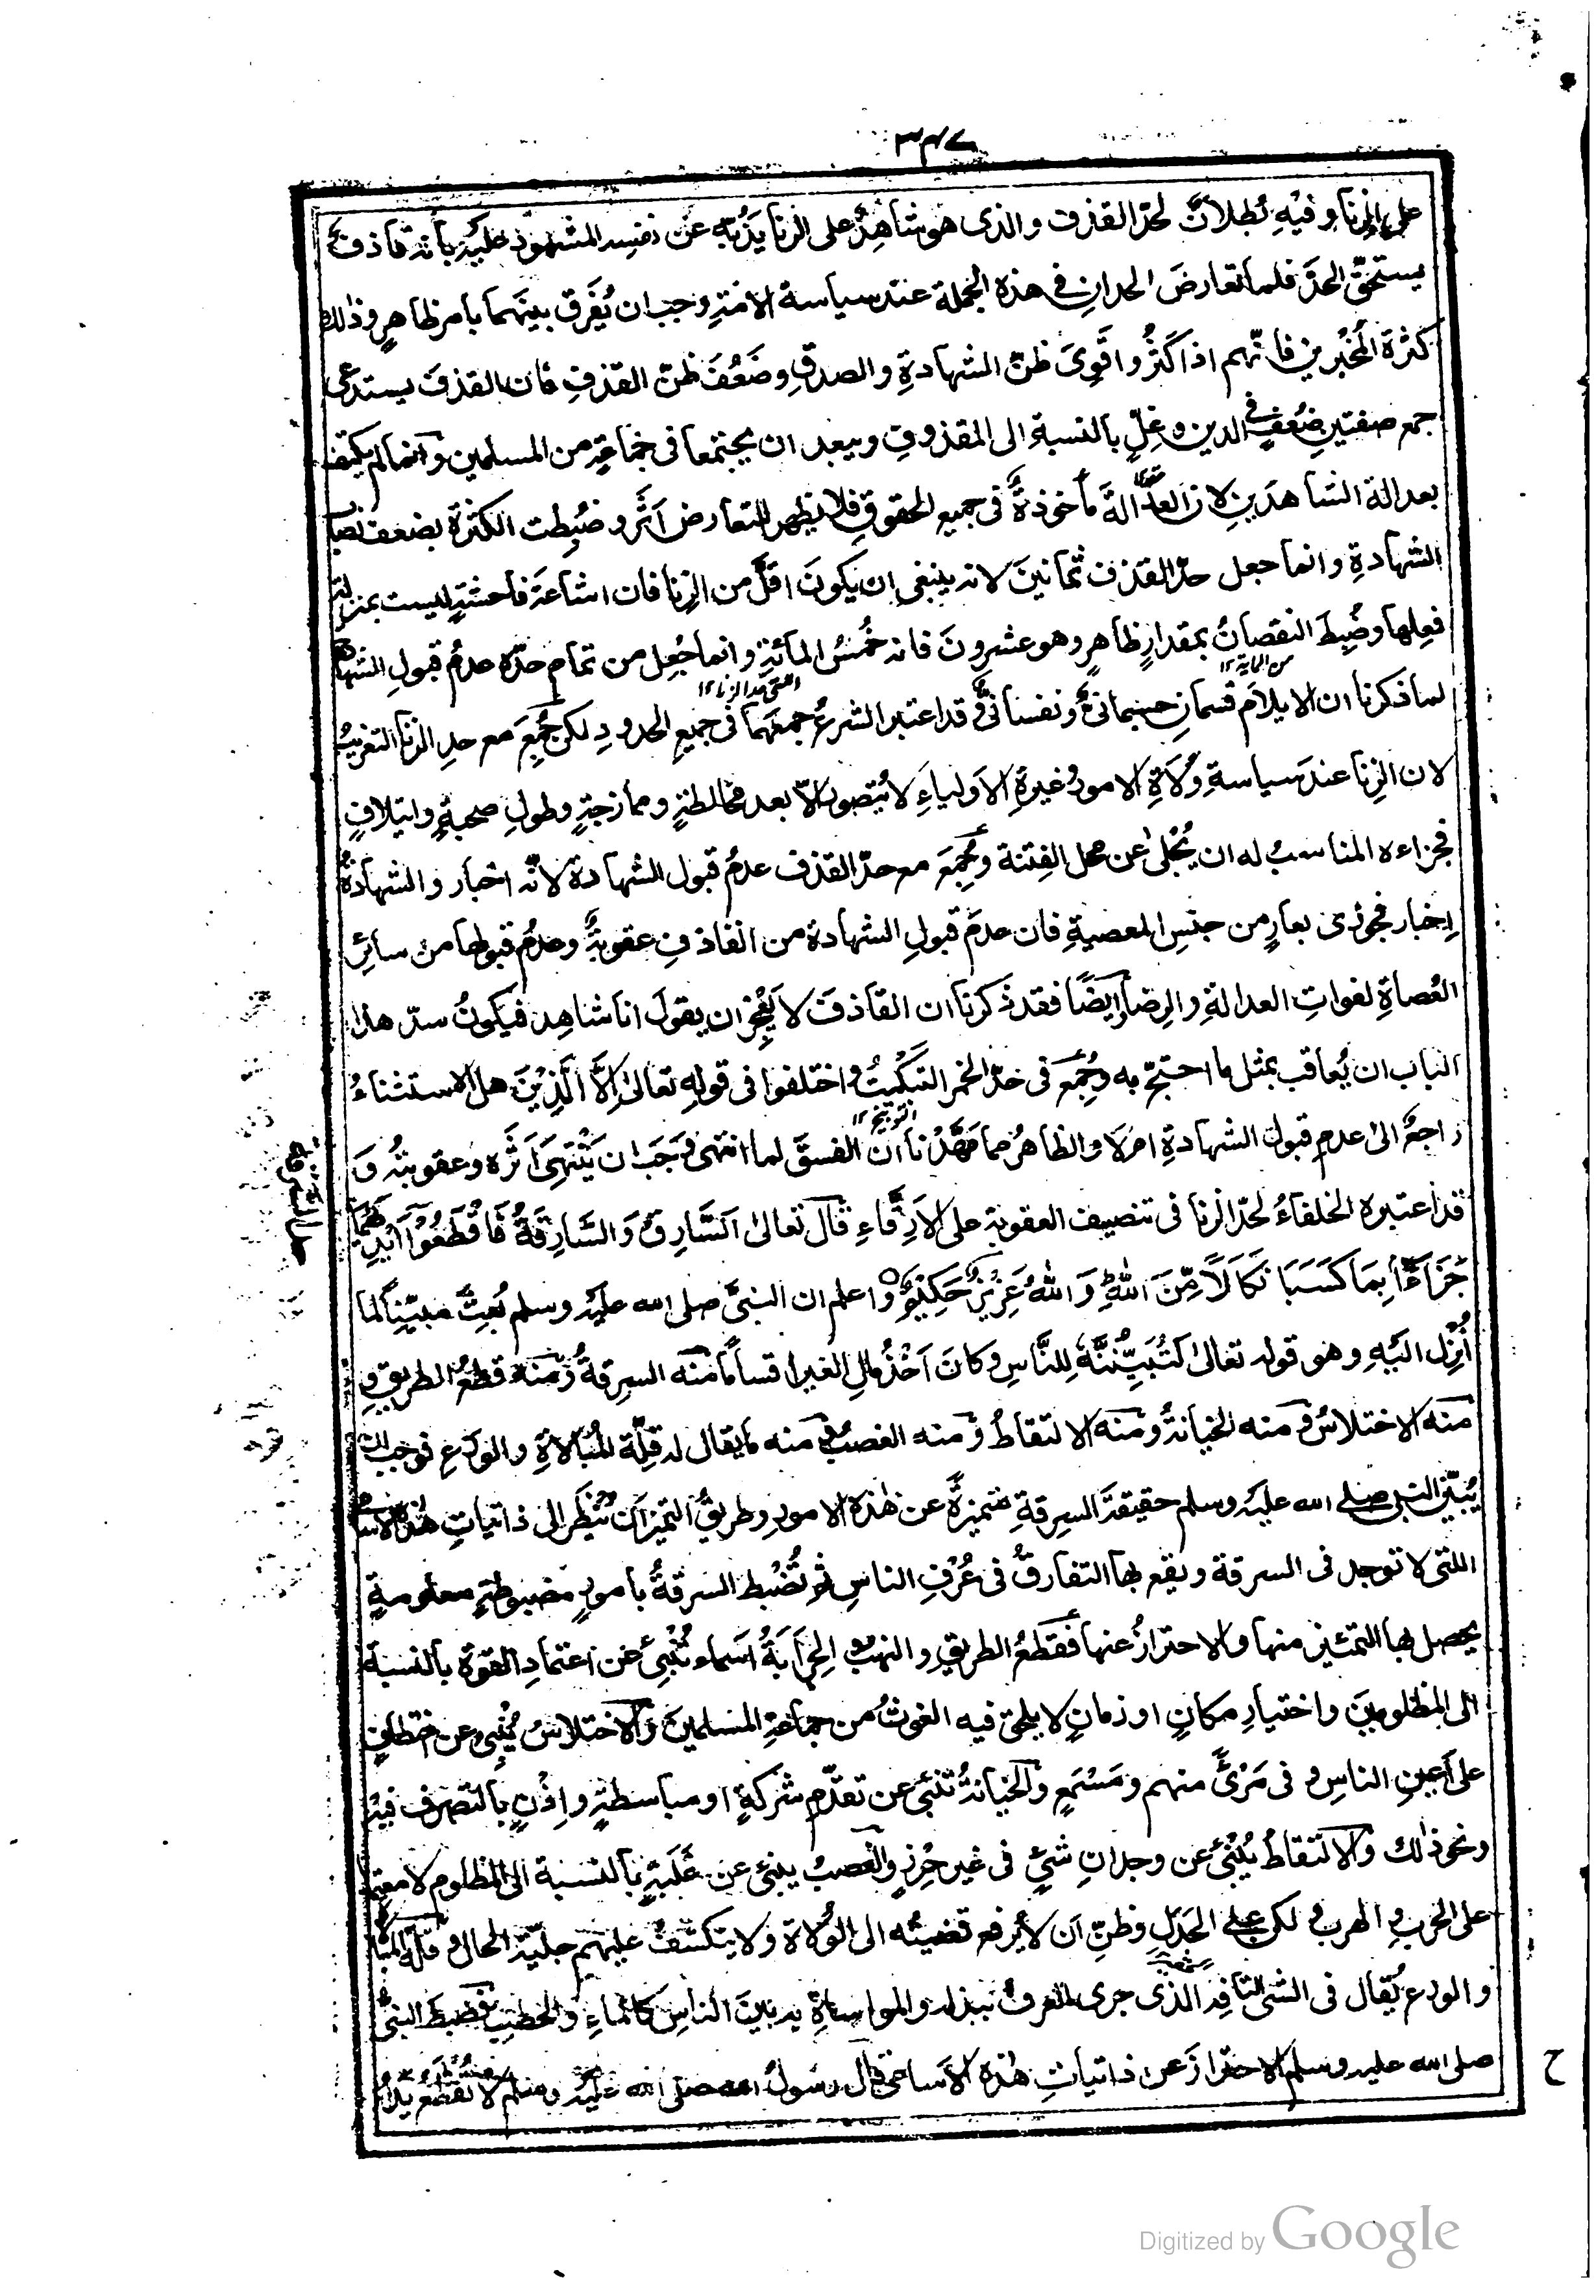 ۳۴۷
على الزنا وفيهِ بُطلانٌ لحدّ القذف والذى هو شاهِدٌ على الزنا يَذُبّه عن نفسِه المشهود عليه بأنه قاذفٌ
يستحقّ الحدّ فلما تعارضَ الحدانِ فى هذه الجملة عند سياسة الامةِ وجب ان يُفَرق بينهما بأمر ظاهرٍ وذلك
كثرة المخبرين فانّهم اذا كثروا قَوِىَ ظنّ الشهادةِ والصدقِ وضَعُفَ ظنّ القذفِ فان القذفَ يستدعى
جمع صفتينِ ضُعفٍ فى الدين وغِلٍّ بالنسبةِ الى المقذوفِ ويبعد ان يجتمعا فى جماعةٍ من المسلمين وانما لم يكتف
بعدالة الشاهدَينِ لان العدالةَ مأخوذةٌ فى جميع الحقوقِ فلا يظهر للتعارض اَثَرٌ وضُبِطت الكثرة بضعف نصاب
الشهادةِ وانما جعل حدّ القذف ثمانينَ لانه ينبغى ان يكونَ اقلَّ من الزنا فان اشاعةَ فاحشةٍ ليست بمنزلة
فعلِها وضُبِطَ النقصانُ بمقدارٍ ظاهرٍ وهو عشرونَ فانه خُمسُ المائةِ وانما جُعِل من تمام حدّه عدمُ قبولِ الشهادة
من المایة ۱۲
لما ذكرنا ان الايلامَ قسمانِ جسمانىٌّ ونفسانىٌّ وقد اعتبر الشرعُ جمعَهما فى جميعِ الحدودِ لكن جُمِعَ مع حدِ الزنا التغريبُ
لان الزِنا عندَ سياسةِ وُلَاةِ الامورِ وغيرةِ الاَولياءِ لا يُتصور الّا بعد مخالطةٍ وممازجةٍ وطولِ صحبةٍ وايتلافٍ
فجزاءه المناسبُ له ان يُجلىٰ عن محل الفِتنة وجُمِعَ مع حدّ القذف عدمُ قبول الشهادة لانّه اخبار والشهادةُ
اِخبار فجوزى بعارٍ من جنسِ المعصيةِ فان عدمَ قبولِ الشهادة من القاذفِ عقوبةٌ وعدمُ قبولها من سائرِ
العُصاةِ لفواتِ العدالةِ والرِضا وايضًا فقد ذكرنا ان القاذفَ لا يَعْجِز ان يقولَ انا شاهِد فيكونُ سدّ هذا
الباب ان يُعاقب بمثل ما احتجّ به وجُمِع فى حدّ الخمر التبكيتُ واختلفوا فى قولِهِ تعالىٰ اِلَّا الَّذِيْنَ هل الاستثناءُ
التوبیخ ۱۲
راجعٌ الىٰ عدمِ قبول الشهادةِ ام لَا والظاهرُ مما مَهَّدْنا ان الفسقَ لما انتهى وَجَبَ ان يَنْتَهِىَ اَثَرُه وعقوبتُه وَ
قد اعتبره الخلفاءُ لحدّ الزنا فى تنصيف العقوبة على الاَرِقّاءِ قَالَ تعالىٰ اَلسَّارِقُ وَالسَّارِقَةُ فَاقْطَعُوْآ اَيْدِيَهُمَا
جَزَآءًۢ بِمَا كَسَبَا نَكَالًا مِّنَ اللهِ وَاللهُ عَزِيْزٌ حَكِيْمٌ واعلم ان النبىَّ صلى الله عليه وسلم بُعِثَ مبيّناً لما
اُنزِل اليهِ وهو قوله تعالىٰ لتُبَيِّنَنَّهٗ لِلنَّاسِ وكانَ اَخْذُ مالِ الغيرِ اقساماً منه السرقةُ ومنه قطعُ الطريقِ و
منه الاختلاسُ ومنه الخيانةُ ومنه الالتقاطُ ومنه الغصبُ ومنه ما يقال له قلّة المُبالاةِ والورَعِ فوجب ان
يُبيّن النبى صلى الله عليه وسلم حقيقةَ السرقةِ متميزةً عن هٰذه الامورِ وطريقُ التميز اَن يُنْظَر الى ذاتياتِ هٰذه الاسامى
اللتى لا توجد فى السرقة ويقع بها التفارقُ فى عُرْفِ الناسِ ثم تُضْبط السرقةُ بأمورٍ مضبوطةٍ معلومةٍ
يحصل بها التميّز منها والاحترازُ عنها فقطعُ الطريقِ والنهبُ والحِرَابَةُ اسماء تُنْبِئُ عن اعتمادِ القوة بالنسبة
الى المظلومينَ واختيارِ مكانٍ او زمانٍ لا يلحق فيه الغوثُ من جماعةِ المسلمينَ والاختلاسُ يُنْبِئُ عن اختطافٍ
على اَعينِ الناسِ وفى مَرْئًى منهم ومَسْمَعٍ والخيانةُ تنبئ عن تقدّمِ شركةٍ او مباسطةٍ واِذْنٍ بالتصرف فيه
ونحو ذلك والالتقاطُ يُنْبِئُ عن وجدانِ شئٍ فى غير حِرْزٍ والغصبُ ينبئ عن غَلَبةٍ بالنسبة الى المظلوم لا معتمدا
على الحَرْبِ والهرب ولكن على الجَدَلِ وظنّ اَن لا يُرفع قضيتُه الى الوُلاةِ ولا ينكشفُ عليهم جليّة الحال وقلة المبالاة
والورع يُقال فى الشئ التافِه الذى جرى العرفُ ببذله والمواساةِ به بينَ الناسِ كالماءِ والحطبِ فضبط النبىُّ
صلى الله عليه وسلم الاحترازَ عن ذاتياتِ هٰذه الاَسامى قال رسولُ الله صلى الله عليه وسلم لا تُقطَعُ يدُ
ح
Digitized by Google